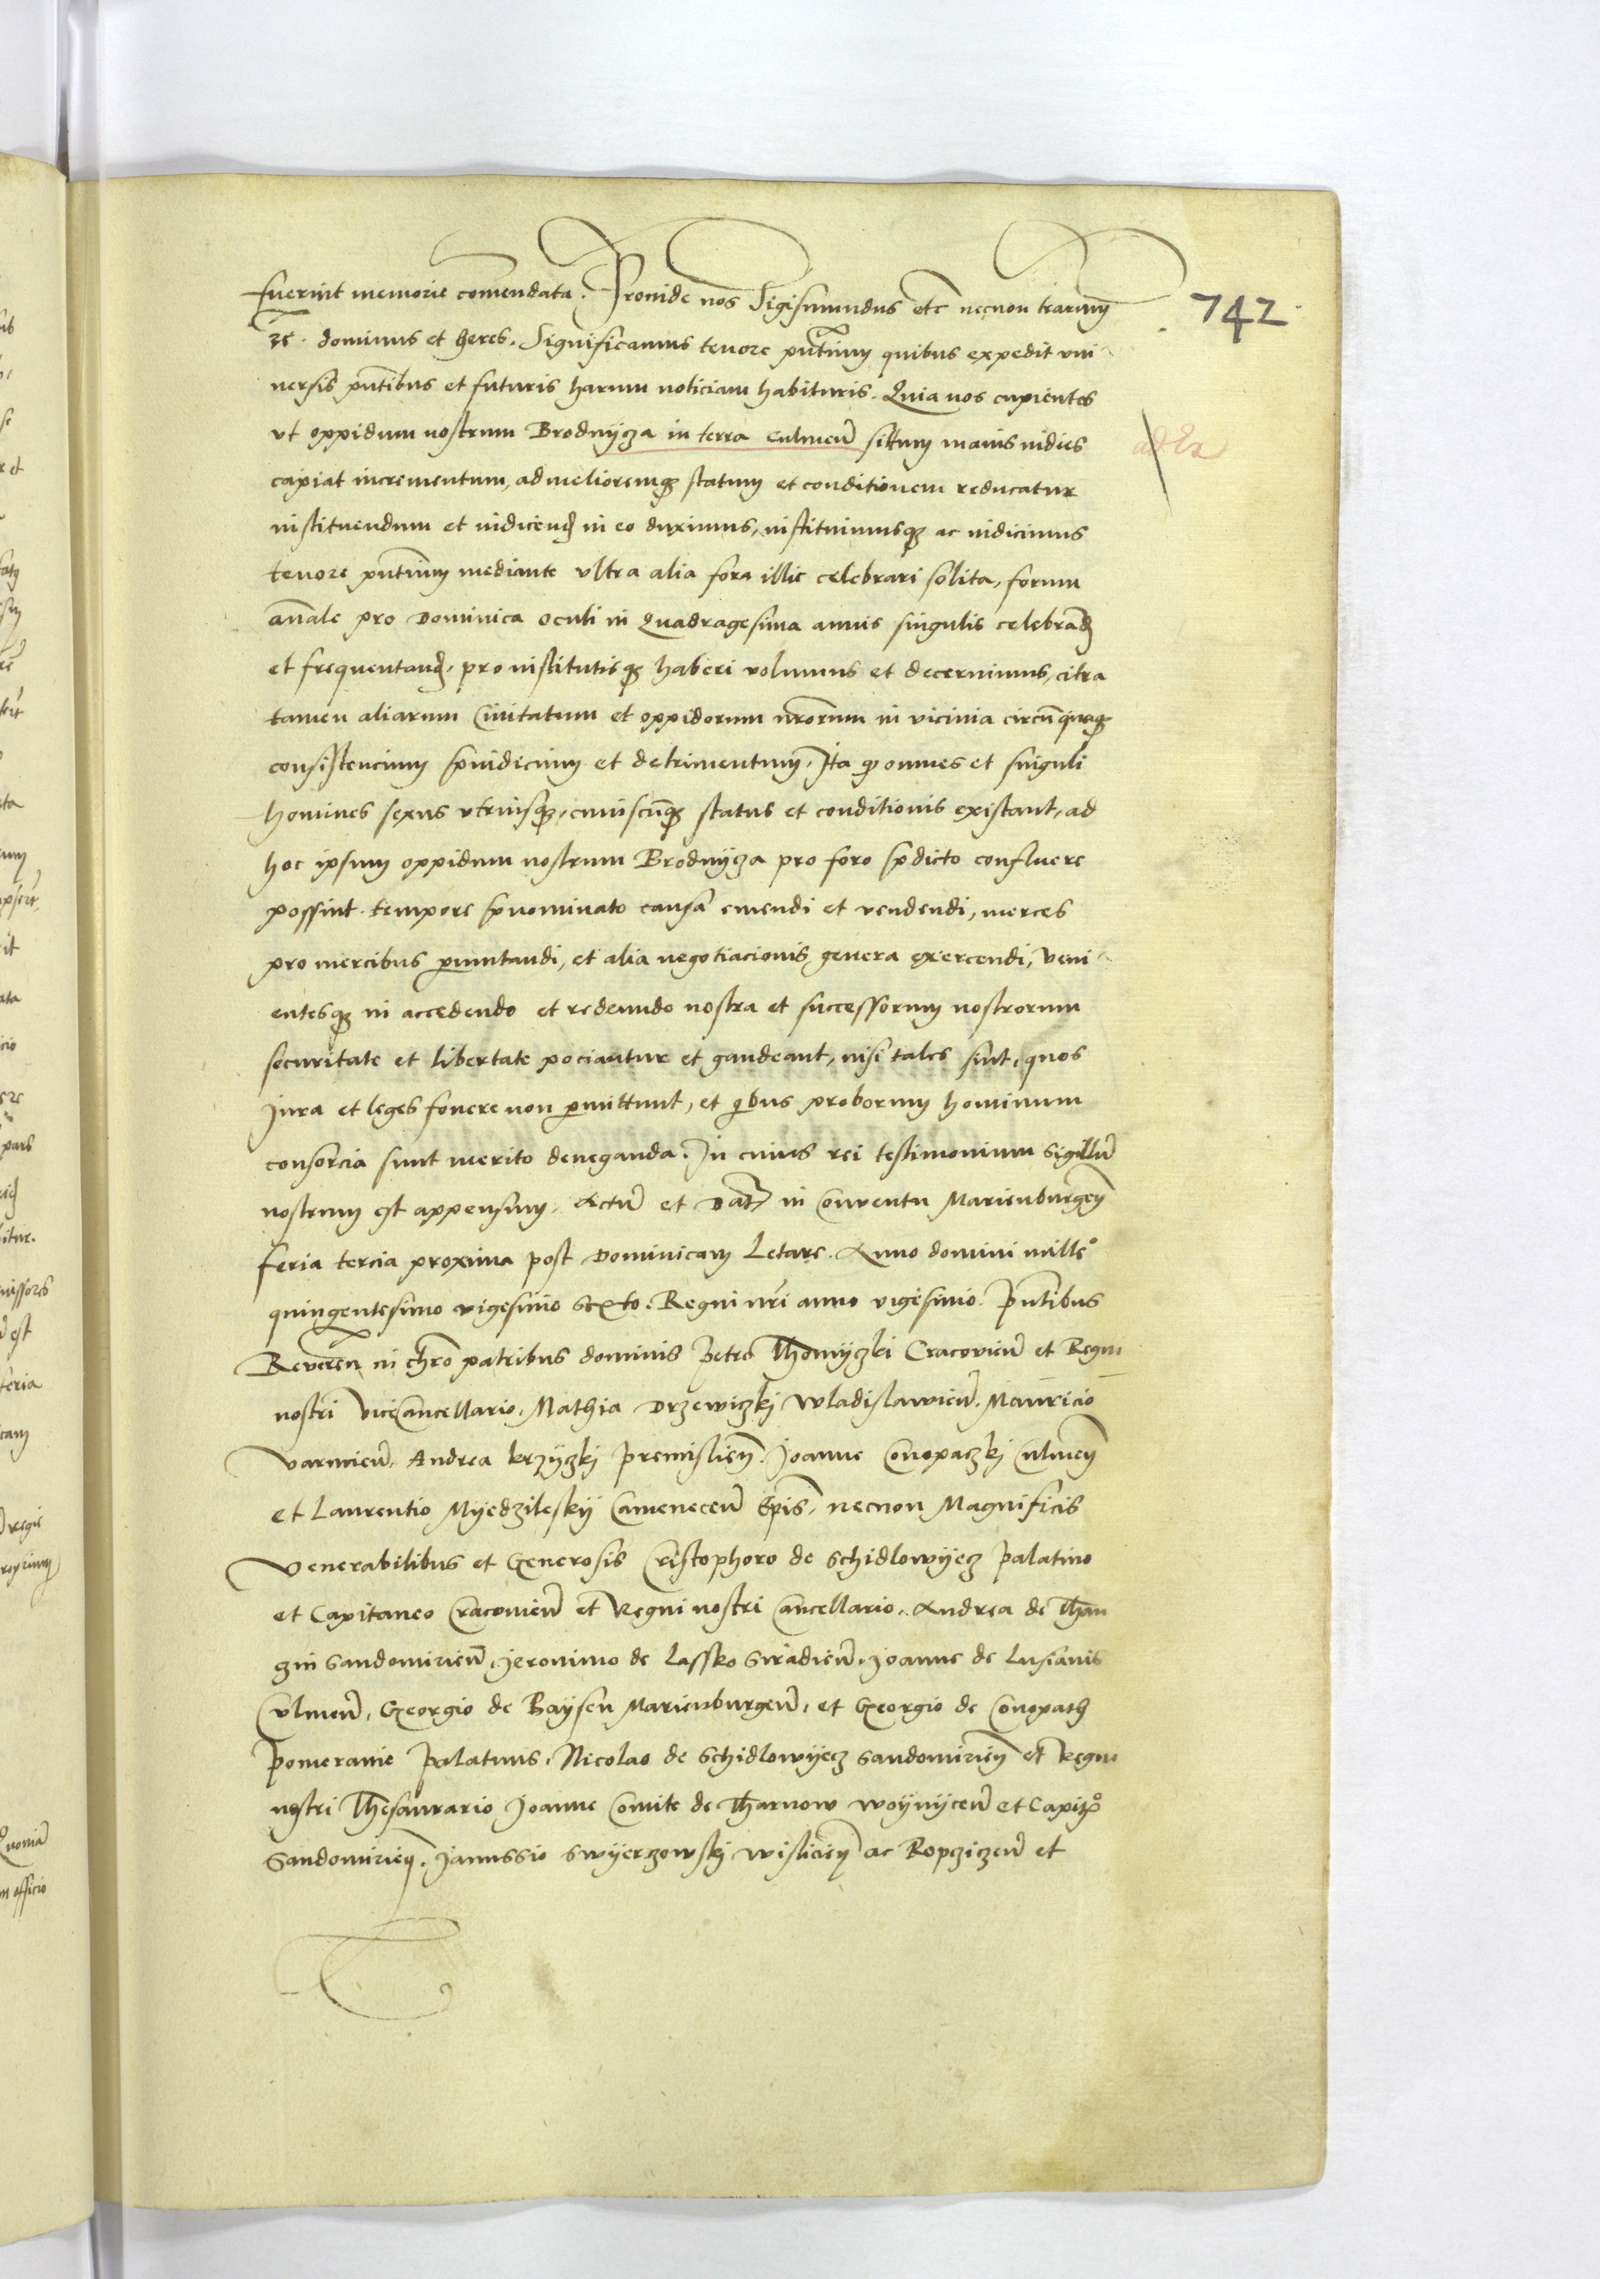 fuerint memorie com̄endata. Proinde nos Sigismundus etc necnon terarum
etc. dominus et heres. Significamus tenore pn̄tium quibus expedit uni
versis pn̄tibus et futuris harum noticiam habituris. Quia nos cupientes
vt oppidum nostrum Brodnÿcza in terra culmen̄ situm maius indies
capiat incrementum, ad melioremqꝫ statum et conditionem reducatur
instituendum et indicend in eo duximus, instituimusqꝫ ac indicimus
tenore pn̄tium mediante vltra alia fora illic celebrari solita, forum
an̄ale pro Dominica oculi in Quadragesima annis singulis celebrand
et frequentand, pro institutisqꝫ haberi volumus et decernimus, citra
tamen aliarum Civitatum et oppidorum nr̄orum in vicinia circūquaqꝫ
consistencium p̄iudicium et detrimentum, Ita qꝫ omnes et singuli
homines sexus vtriusqꝫ, cuiuscūqꝫ status et conditionis existant, ad
hoc ipsum oppidum nostrum Brodnÿcza pro foro p̄dicto confluere
possint tempore p̄nominato causa emendi et vendendi, merces
pro mercibus ꝑmutandi, et alia negotiacionis genera exercendi, veni
entesqꝫ in accedendo et redeundo nostra et successorum nostrorum
securitate et libertate pociantur et gaudeant, nisi tales sint, quos
Jura et leges fovere non ꝑmittunt, et qibus proborum hominum
consorcia sunt merito deneganda. In cuius rei testimonium sigillū
nostrum est appensum. Actū et Dat in Conventu Marienburgen̄
feria tercia proxima post Dominicam Letare. Anno domini milleo
quingentesimo vigesimo sexto. Regni nr̄i anno vigesimo. Pn̄tibus
Reveren̄ in chr̄o patribus dominis Petro Thomÿczki Cracovien̄ et Regni
nostri vicecancellario. Mathia Drzewiczkj Wladislavien̄. Mauricio
varmien̄. Andrea krzÿczkj premislien̄. Joanne Conopaczkj Culmen̄
et Laurentio Mÿedzileskÿ Camenecen̄ Ep̄is, necnon Magnificis
Venerabilibus et Generosis Cristophoro de Schidlowÿecz palatino
et Capitaneo Cracovien̄ et Regni nostri Cancellario. Andrea de Than
zin Sandomirien̄, Jeronimo de Lassko Siradien̄. Joanne de Lusianis
Culmen̄, Georgio de Baÿsen Marienburgen̄, et Georgio de Conopath
pomeranie Palatinis. Nicolao de Schidlowÿecz Sandomirien̄ et Regni
nostri Thesaurario Joanne Comite de Tharnow Woÿnÿcen̄ et Capito
Sandomirien̄. Janussio Swÿerzowskÿ wislicien̄ ac Ropcziczen̄ et
742